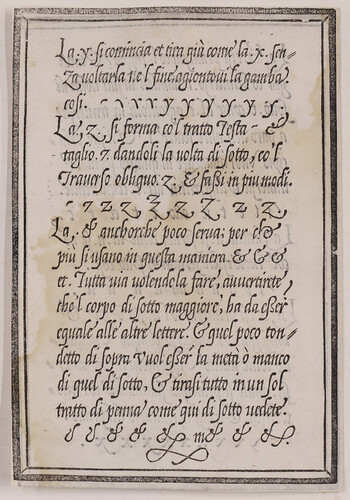 La .y. si comincia et tira giù come la .x. sen=
za voltarla ne'l fine agiontovi la gamba
cosi. - ν ν ν y y y y y y y.
La, z. si forma co'l tratto Testa -
taglio. 7. dandoli la volta di sotto, co'l
Traverso obliquo. z, & fassi in piu modi.
- 7 z z Z Z Z Z z Z
La, & anchorche poco serva: per che
più si usano in questa maniera & & &
et. Tutta via volendola fare, avvertirete
che'l corpo di sotto maggiore, ha da esser
equale alle altre lettere. & quel poco ton=
detto di sopra vuol esser la metà ò manco
di quel di sotto, & tirasi tutto in un sol
tratto di penna come qui di sotto vedete.
& & & & m& & &.